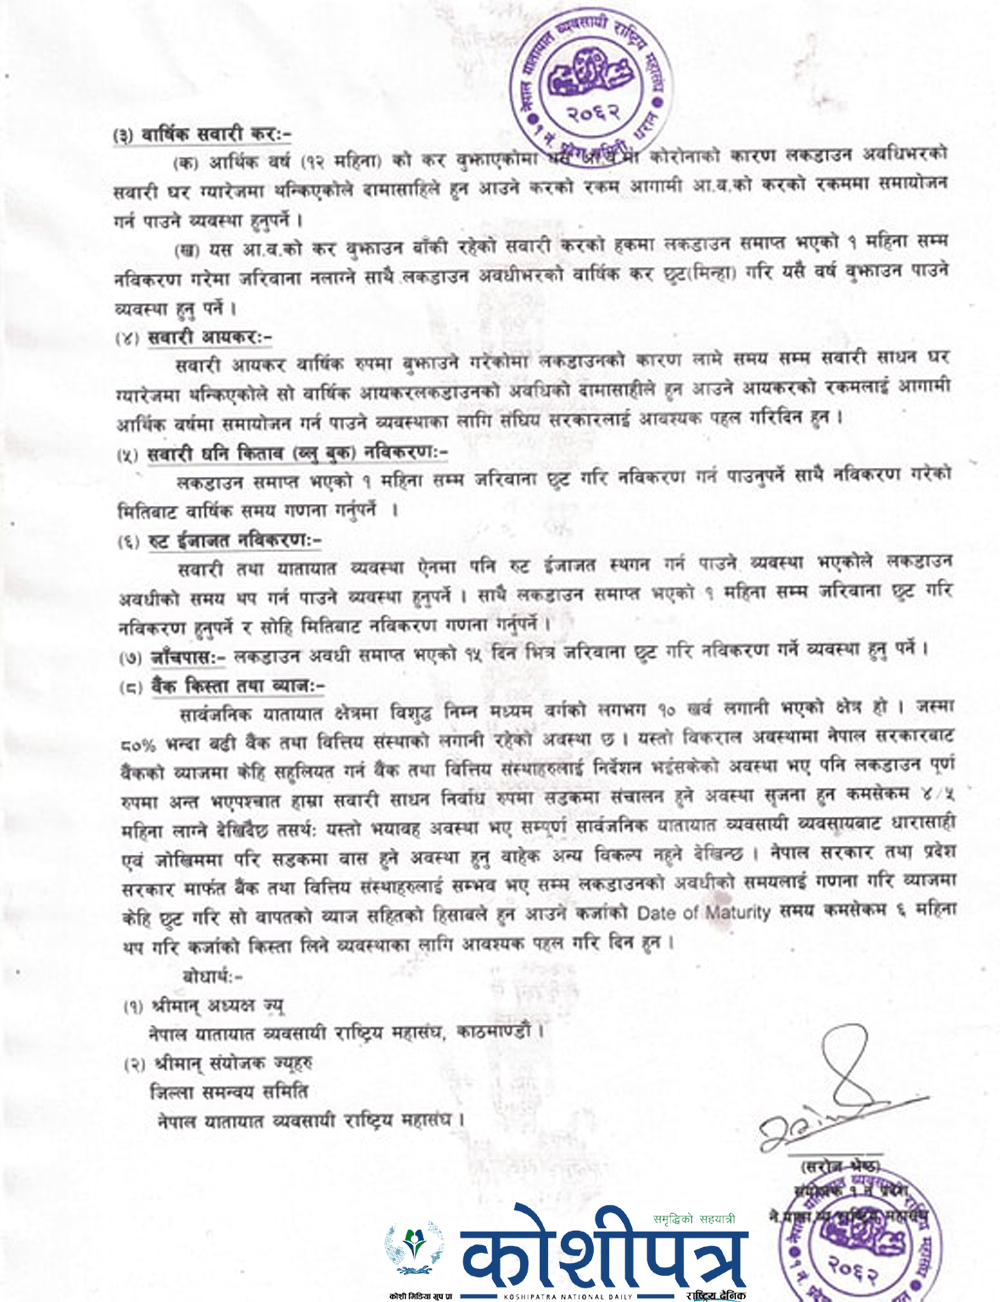 नेपाल यातायात व्यवसायी राष्ट्रिय महासंघ
२०६२
१ नं. प्रदेश समिती, धरान
(३) वार्षिक सवारी करः-
(क) आर्थिक वर्ष (१२ महिना) को कर वुझाएकोमा यस आ.व.मा कोरोनाको कारण लकडाउन अवधिभरको
सवारी घर ग्यारेजमा थन्किएकोले दामासाहिले हुन आउने करको रकम आगामी आ.व.को करको रकममा समायोजन
गर्न पाउने व्यवस्था हुनुपर्ने ।
(ख) यस आ.व.को कर वुझाउन बाँकी रहेको सवारी करको हकमा लकडाउन समाप्त भएको १ महिना सम्म
नविकरण गरेमा जरिवाना नलाग्ने साथै लकडाउन अवधीभरको वार्षिक कर छुट(मिन्हा) गरि यसै वर्ष वुझाउन पाउने
व्यवस्था हुनु पर्ने ।
(४) सवारी आयकरः-
सवारी आयकर वार्षिक रुपमा वुझाउने गरेकोमा लकडाउनको कारण लामे समय सम्म सवारी साधन घर
ग्यारेजमा थन्किएकोले सो वार्षिक आयकरलकडाउनको अवधिको दामासाहीले हुन आउने आयकरको रकमलाई आगामी
आर्थिक वर्षमा समायोजन गर्न पाउने व्यवस्थाका लागि संघिय सरकारलाई आवश्यक पहल गरिदिन हुन ।
(५) सवारी धनि किताव (व्लु बुक) नविकरणः-
लकडाउन समाप्त भएको १ महिना सम्म जरिवाना छुट गरि नविकरण गर्न पाउनुपर्ने साथै नविकरण गरेको
मितिबाट वार्षिक समय गणना गर्नुपर्ने ।
(६) रुट ईजाजत नविकरणः-
सवारी तथा यातायात व्यवस्था ऐनमा पनि रुट ईजाजत स्थगन गर्न पाउने व्यवस्था भएकोले लकडाउन
अवधीको समय थप गर्न पाउने व्यवस्था हुनुपर्ने । साथै लकडाउन समाप्त भएको १ महिना सम्म जरिवाना छुट गरि
नविकरण हुनुपर्ने र सोहि मितिबाट नविकरण गणना गर्नुपर्ने ।
(७) जाँचपासः- लकडाउन अवधी समाप्त भएको १५ दिन भित्र जरिवाना छुट गरि नविकरण गर्ने व्यवस्था हुनु पर्ने ।
(८) वैंक किस्ता तथा व्याजः-
सार्वजनिक यातायात क्षेत्रमा विशुद्ध निम्न मध्यम वर्गको लगभग १० खर्व लगानी भएको क्षेत्र हो । जस्मा
८०% भन्दा बढी वैंक तथा वित्तिय संस्थाको लगानी रहेको अवस्था छ । यस्तो विकराल अवस्थामा नेपाल सरकारबाट
वैंकको व्याजमा केहि सहुलियत गर्न वैंक तथा वित्तिय संस्थाहरुलाई निर्देशन भईसकेको अवस्था भए पनि लकडाउन पूर्ण
रुपमा अन्त भएपश्चात हाम्रा सवारी साधन निर्वाध रुपमा सडकमा संचालन हुने अवस्था सृजना हुन कमसेकम ४/५
महिना लाग्ने देखिदैछ तसर्थः यस्तो भयावह अवस्था भए सम्पूर्ण सार्वजनिक यातायात व्यवसायी व्यवसायबाट धारासाही
एवं जोखिममा परि सडकमा वास हुने अवस्था हुनु वाहेक अन्य विकल्प नहूने देखिन्छ । नेपाल सरकार तथा प्रदेश
सरकार मार्फत वैंक तथा वित्तिय संस्थाहरुलाई सम्भव भए सम्म लकडाउनको अवधीको समयलाई गणना गरि व्याजमा
केहि छुट गरि सो वापतको व्याज सहितको हिसाबले हुन आउने कर्जाको Date of Maturity समय कमसेकम ६ महिना
थप गरि कर्जाको किस्ता लिने व्यवस्थाका लागि आवश्यक पहल गरि दिन हुन ।
बोधार्थः-
(१) श्रीमान् अध्यक्ष ज्यू
नेपाल यातायात व्यवसायी राष्ट्रिय महासंघ, काठमाण्डौं ।
(२) श्रीमान् संयोजक ज्यूहरु
जिल्ला समन्वय समिति
नेपाल यातायात व्यवसायी राष्ट्रिय महासंघ ।
(सरोज श्रेष्ठ)
संयोजक १ नं प्रदेश
ने.याता.व्य.राष्ट्रिय महासंघ
२०६२
समृद्धिको सहयात्री
कोशीपत्र
कोशी मिडिया ग्रुप प्रा
KOSHIPATRA NATIONAL DAILY
राष्ट्रिय दैनिक